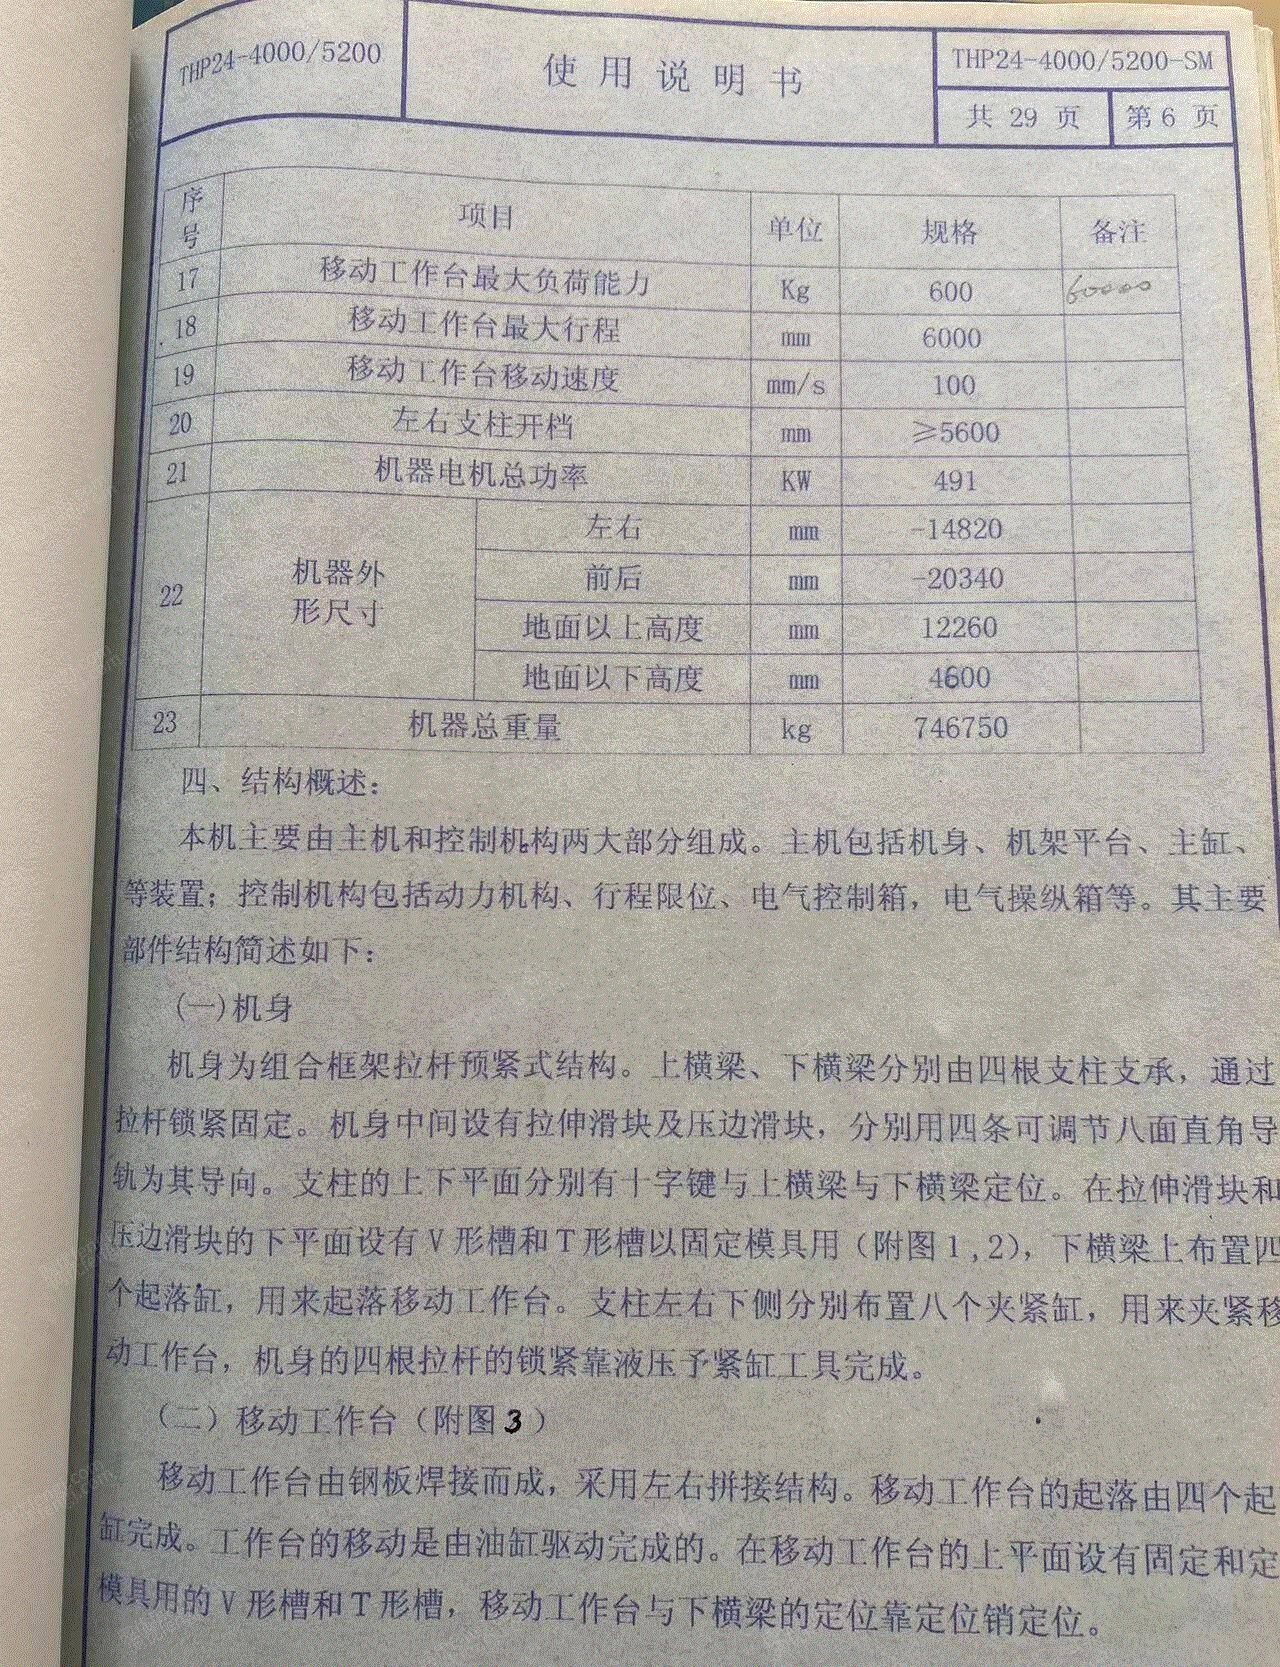 THP24-4000/5200 使用说明书 THP24-4000/5200-SM
共 29 页 第6 页
序号 项目 单位 规格 备注
17 移动工作台最大负荷能力 Kg 600 60000
18 移动工作台最大行程 mm 6000
19 移动工作台移动速度 mm/s 100
20 左右支柱开档 mm ≥5600
21 机器电机总功率 KW 491
22 机器外形尺寸 左右 mm -14820
前后 mm -20340
地面以上高度 mm 12260
地面以下高度 mm 4600
23 机器总重量 kg 746750
四、结构概述：
本机主要由主机和控制机构两大部分组成。主机包括机身、机架平台、主缸、
等装置；控制机构包括动力机构、行程限位、电气控制箱，电气操纵箱等。其主要
部件结构简述如下：
(一)机身
机身为组合框架拉杆预紧式结构。上横梁、下横梁分别由四根支柱支承，通过
拉杆锁紧固定。机身中间设有拉伸滑块及压边滑块，分别用四条可调节八面直角导
轨为其导向。支柱的上下平面分别有十字键与上横梁与下横梁定位。在拉伸滑块和
压边滑块的下平面设有V形槽和T形槽以固定模具用（附图1,2），下横梁上布置四
个起落缸，用来起落移动工作台。支柱左右下侧分别布置八个夹紧缸，用来夹紧移
动工作台，机身的四根拉杆的锁紧靠液压予紧缸工具完成。
（二）移动工作台（附图3）
移动工作台由钢板焊接而成，采用左右拼接结构。移动工作台的起落由四个起
缸完成。工作台的移动是由油缸驱动完成的。在移动工作台的上平面设有固定和定
模具用的V形槽和T形槽，移动工作台与下横梁的定位靠定位销定位。